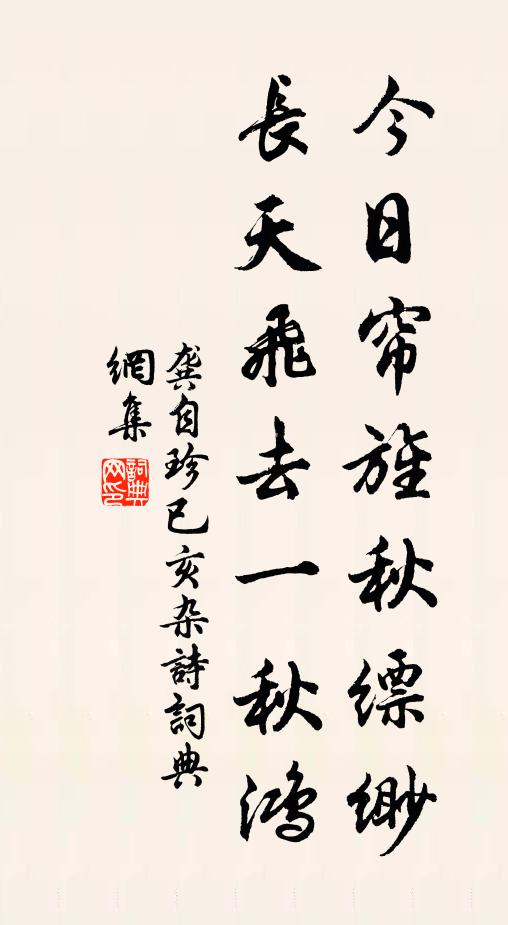 今日帘旌秋缥缈
長天飛去一秋鴻
龔自珍已亥杂詩詞典
網集
詞典網印